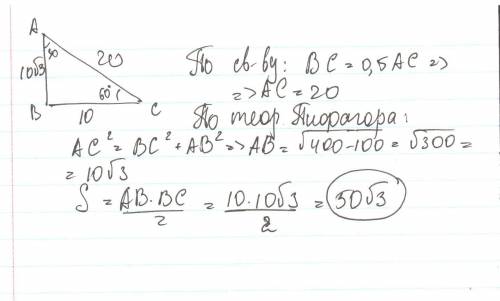 A
30
20
10√3
60°
B
10
C
По св-ву: BC = 0,5 AC =>
=> AC = 20
По теор. Пифагора:
AC² = BC² + AB² => AB = √400-100 = √300 =
= 10√3
S = AB·BC/2 = 10·10√3/2 = 50√3